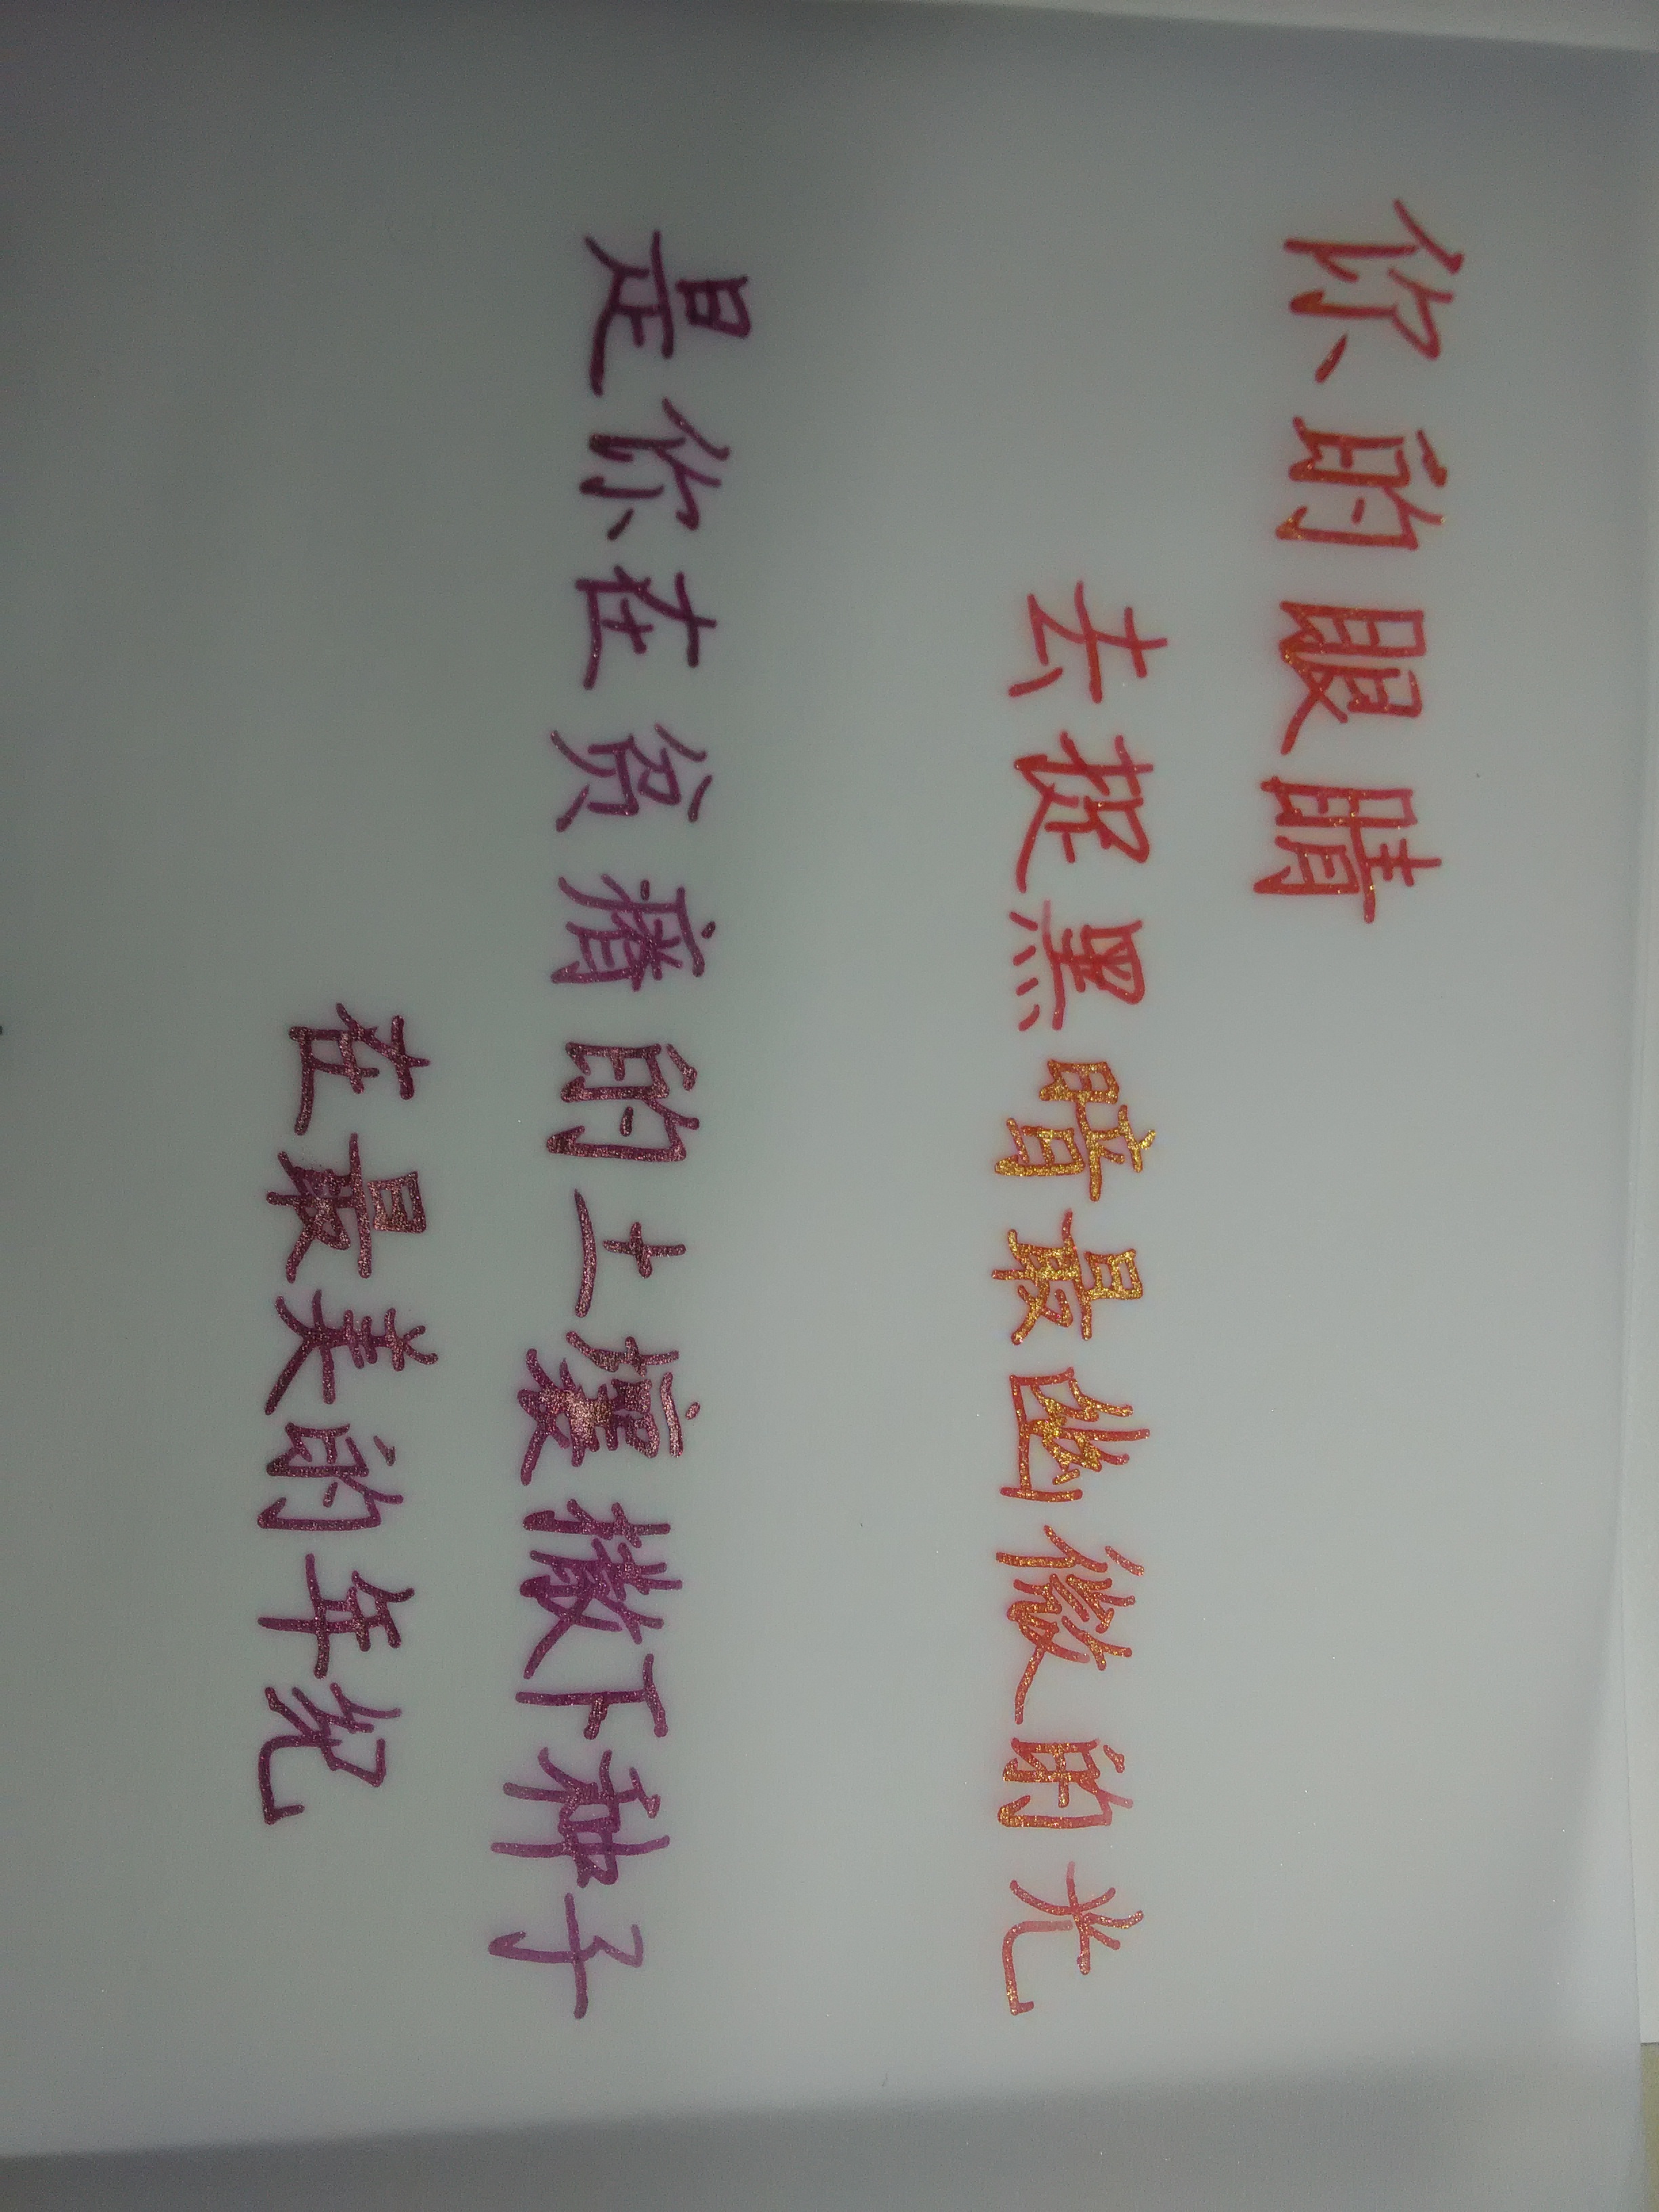 你的眼睛
去捉黑暗最幽微的光
是你在贫瘠的土壤撒下种子
在最美的年纪